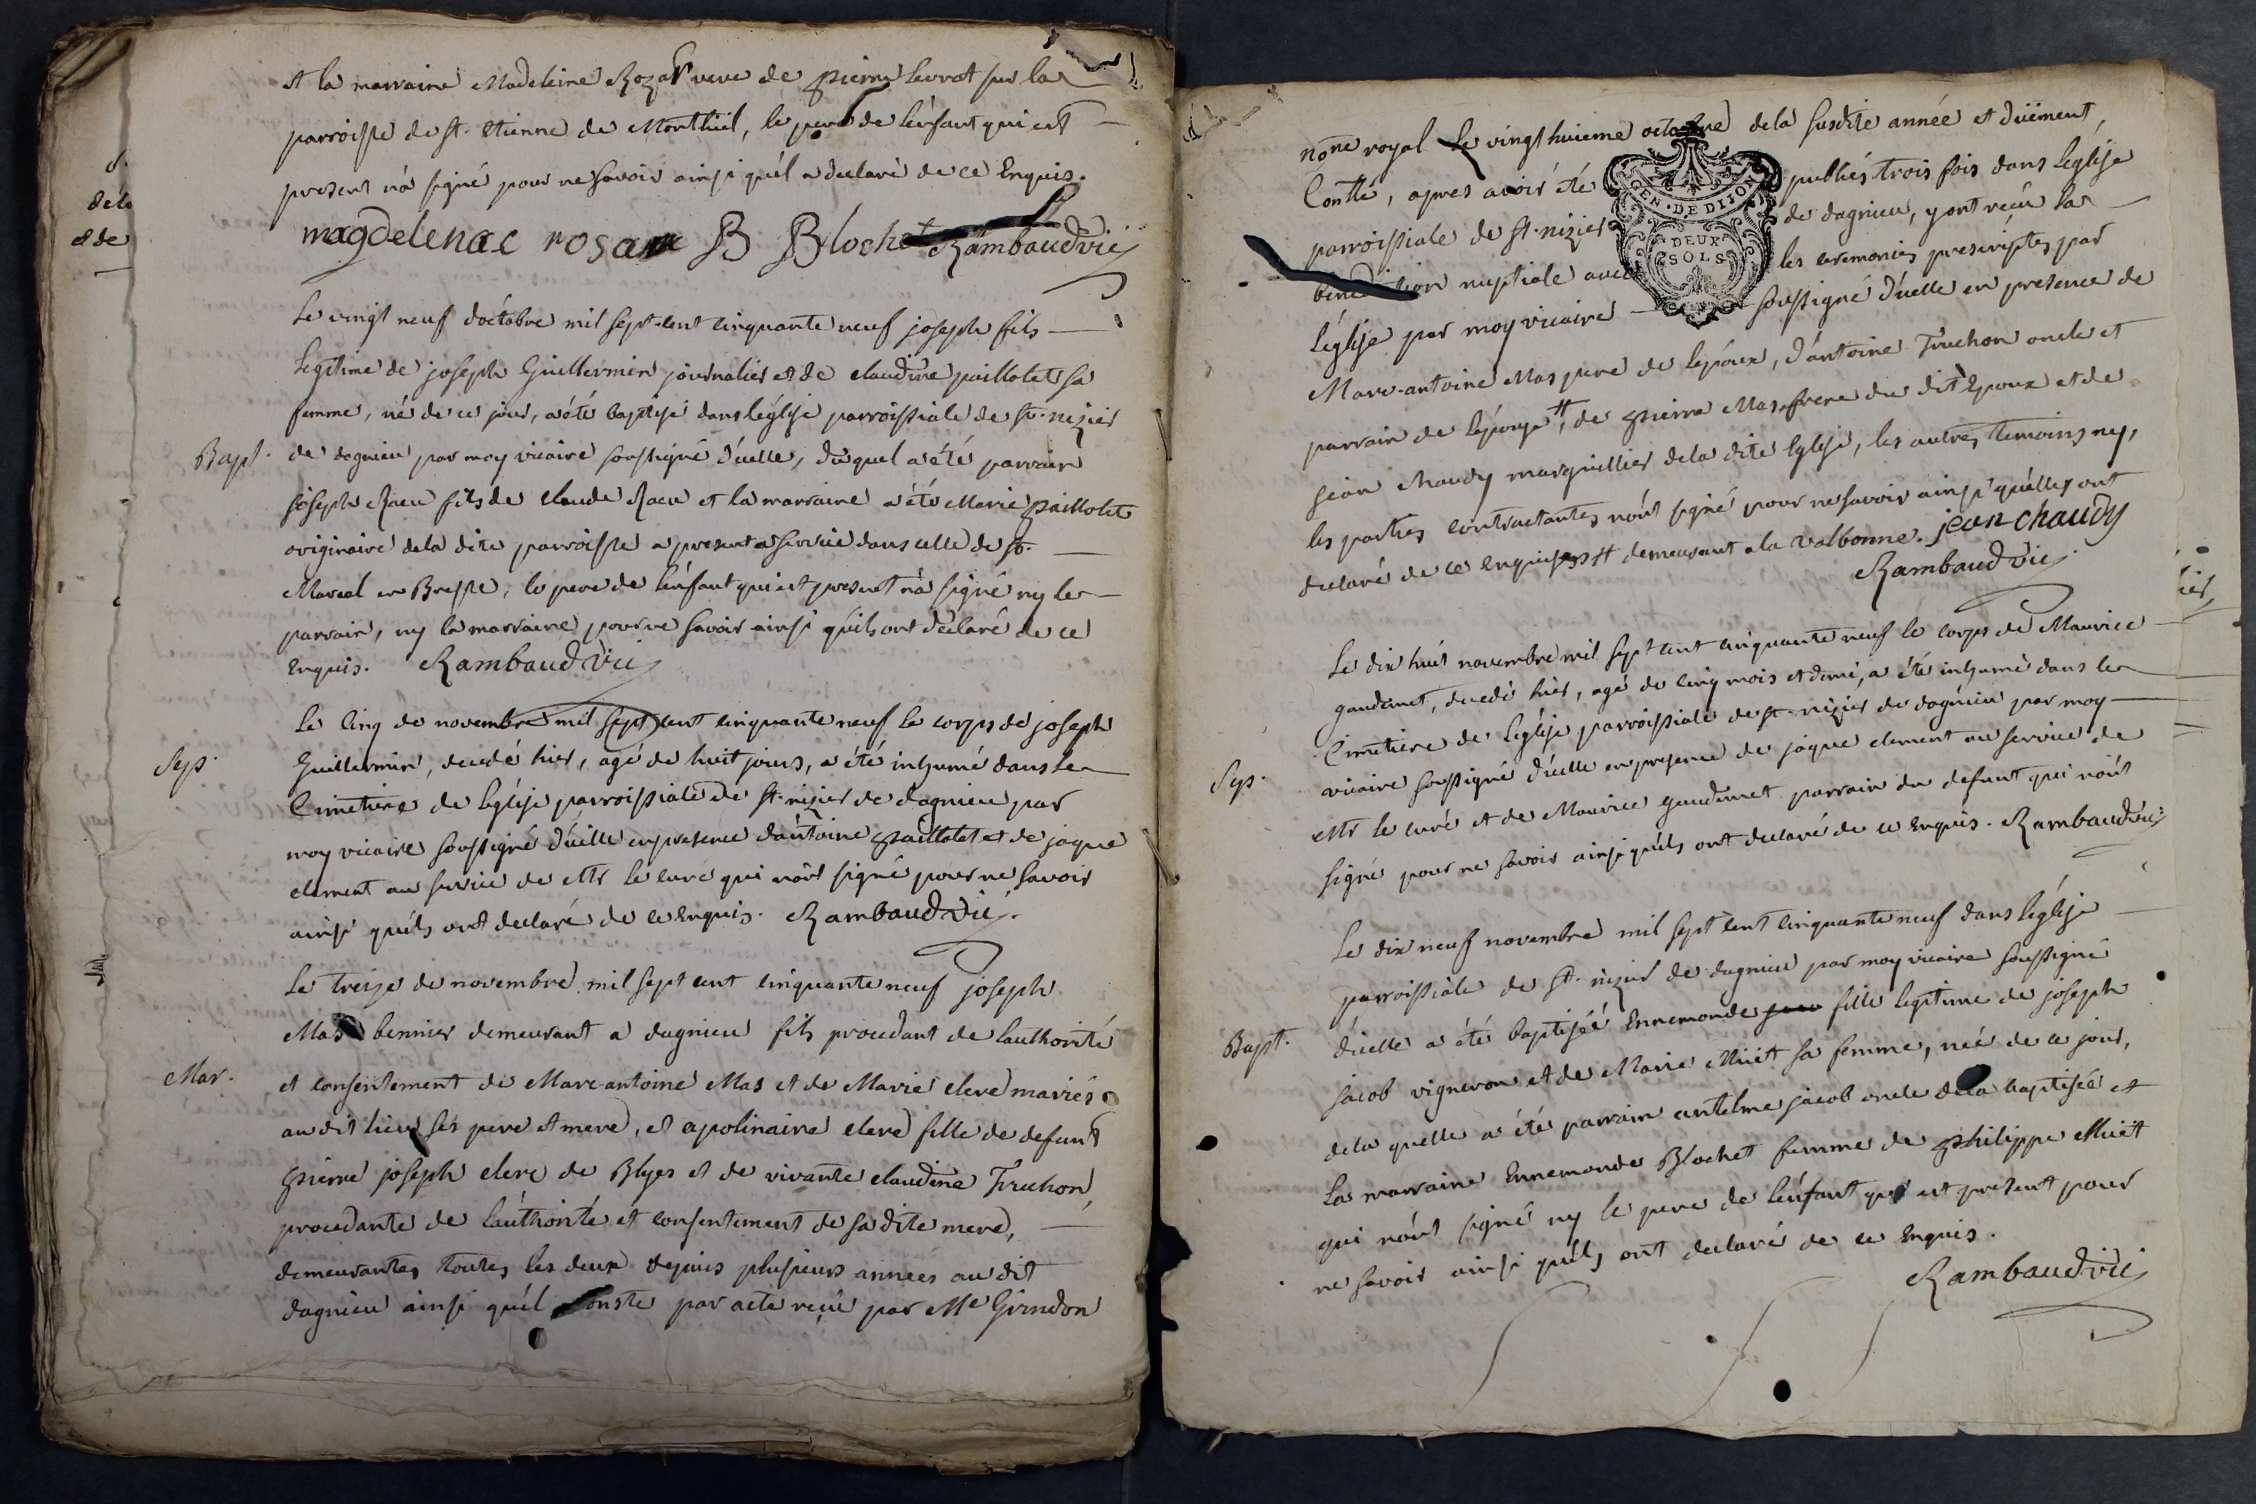 et la marraine Madeleine Rozar veuve de pierre levrat sur la
parroisse de st. etienne de Montluel, le pere de l'enfant qui est
present n'a signé pour ne savoir ainsi qu'il a declaré de ce Enquis.
magdelenae rosar B Blochet Rambaud vic
Le vingt neuf d'octobre mil sept cent cinquante neuf joseph fils
Legitime de joseph Guillermin journalier et de claudine paillolet sa
femme, né de ce jour, a été baptisé dans l'église parroissiale de st. nizier
Bapt.
de dagnieu par moy vicaire soussigné d'icelle, duquel a été parrain
joseph Racu fils de claude Racu et la marraine a été Marie paillolet
originaire dela dite parroisse a present a service dans celle de st.
Marcel en Bresse, le pere de l'enfant qui est present n'a signé ny le
parrain, ny la marraine pour ne savoir ainsi qu'ils ont declaré de ce
Enquis. Rambaud vic
Le cinq de novembre mil sept cent cinquante neuf le corps de joseph
Sep.
Guillermin, decedé hier, agé de huit jours, a été inhumé dans le
Cimetiere de l'église parroissiale de st. nizier de dagnieu par
moy vicaire soussigné d'icelle en presence d'antoine paillolet et de jaque
clement au service de Mr le curé qui n'ont signé pour ne savoir
ainsi qu'ils ont declaré de ce enquis. Rambaud vic.
Le treize de novembre mil sept cent cinquante neuf joseph
Mas bennier demeurant a dagnieu fils procedant de l'authorité
Mar.
et consentement de Marc-antoine Mas et de Marie clerc mariés
au dit lieu ses pere et mere, et apolinaire clerc fille de defunt
pierre joseph clerc de Blyes et de vivante claudine Truchon,
procedante de l'authorité et consentement de sa dite mere,
demeurantes toutes les deux depuis plusieurs années au dit
dagnieu ainsi qu'il conste par acte reçu par Me Girudon
none royal Le vingt huieme octobre dela susdite année et düement,
Contlé, apres avoir été publiés trois fois dans l'église
GEN. DE DIJON
DEUX SOLS
parroissiale de st. nizier de dagnieu, y ont reçu la
benediction nuptiale avec les ceremonies prescriptes par
l'église par moy vicaire soussigné d'icelle en presence de
Marc-antoine Mas pere de l'epoux, d'antoine Truchon oncle et
parrain de l'epouse #, de pierre Mas frere du dit Epoux et de
jean Chaudy marguillier dela dite Eglise, les autres temoins ny,
les parties contractantes n'ont signé pour ne savoir ainsi qu'elles ont
declaré de ce enquises # demeurant a la valbonne. jean chaudy
Rambaud vic.
Le dix huit novembre mil sept cent cinquante neuf le corps de Maurice
gaudinet, decedé hier, agé de cinq mois et demi, a été inhumé dans le
Cimetiere de l'église parroissiale de st. nizier de dagnieu par moy
Sep.
vicaire soussigné d'icelle en presence de jaque clement au service de
Mr le curé et de Maurice gaudinet parrain du defunt qui n'ont
signé pour ne savoir ainsi qu'ils ont declaré de ce enquis. Rambaud vic
Le dix neuf novembre mil sept cent cinquante neuf dans l'église
parroissiale de st. nizier de dagnieu par moy vicaire soussigné
Bapt.
d'icelle a été baptisée Ennemonde fille legitime de joseph
jacob vigneron et de Marie Miiet sa femme, née de ce jour,
dela quelle a été parrain antelme jacob oncle dela baptisée et
la marraine Ennemonde Blochet femme de philippe Miiet
qui n'ont signé ny le pere de l'enfant qui est present pour
ne savoir ainsi qu'ils ont declaré de ce enquis.
Rambaud vic